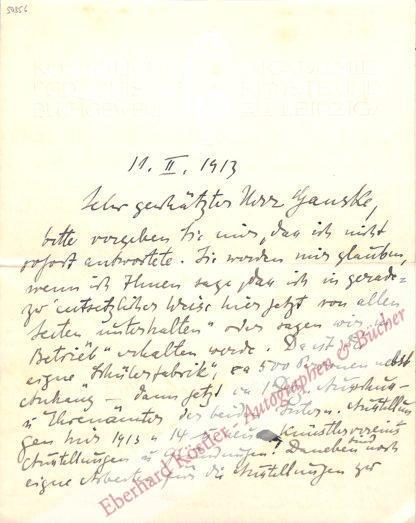 50356
KÖNIGLICHE AKADEMIE
FÜR GRAPHISCHE KÜNSTE UND
BUCHGEWERBE ZU LEIPZIG
11. II. 1913
Sehr geschätzter Herr Hanske,
bitte vergeben Sie mir, daß ich nicht
sofort antwortete. Sie werden mir glauben,
wenn ich Ihnen sage, daß ich in gerade=
zu entsetzlicher Weise hier jetzt von allen
Seiten "unterhalten" oder sagen wir "in
Betrieb" erhalten werde. Da ist
eigne "Schülerfabrik", ca 500 Personen nebst
Anhang – dann jetzt ca Ausschuß-
u Ehrenämter der beiden Ausstellun
gen hier 1913 u 14 Künstlervereins
Ausstellungen u Daneben noch
eigne Arbeiten für die Ausstellungen zu
Eberhard Köstler - Autographen & Bücher